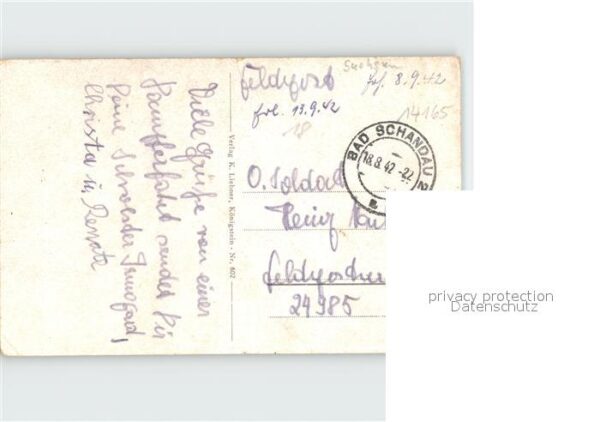 Viele Grüße von einer
Dampferfahrt sendet Dir
Deine Schwester Irmgard,
Christa u. Renate
Verlag K. Liebner, Königstein - Nr. 607
Feldpost
Sachsen
8.9.42
13.9.42
18
14165
BAD SCHANDAU 2
18.8.42
O. Soldat
Heinz
24985
privacy protection
Datenschutz